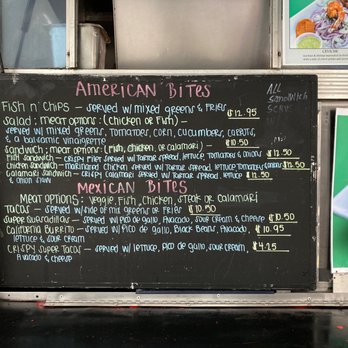 American Bites
Fish n' Chips - served w/ mixed greens & Fries $12.95
Salad: meat options: (Chicken or Fish) -
served w/ mixed greens, Tomatoes, corn, cucumbers, carrots,
& a balsamic vinaigrette $10.50
Sandwich; meat options: (Fish, chicken, or calamari) -
Fish Sandwich - crispy filet served w/ tartar spread, lettuce, tomatoes & onions $12.50
Chicken Sandwich - marinated chicken served w/ tartar spread, lettuce tomatoes & onions $12.50
Calamari Sandwich - crispy calamari served w/ tartar spread, lettuce $12.50
& onion slaw
Mexican Bites
Meat options: veggie, Fish, Chicken, Steak or Calamari
Tacos - served w/ side of mix greens or Fries $10.50
Super Quesadillas - served w/ pico de gallo, Avocado, sour cream & cheese $10.50
California Burrito - served w/ Pico de gallo, Black Beans, Avocado, $10.95
lettuce & sour cream
Crispy Super Tacos - served w/ lettuce, pico de gallo, sour cream, $4.25
Avocado & cheese
All
Sandwitch